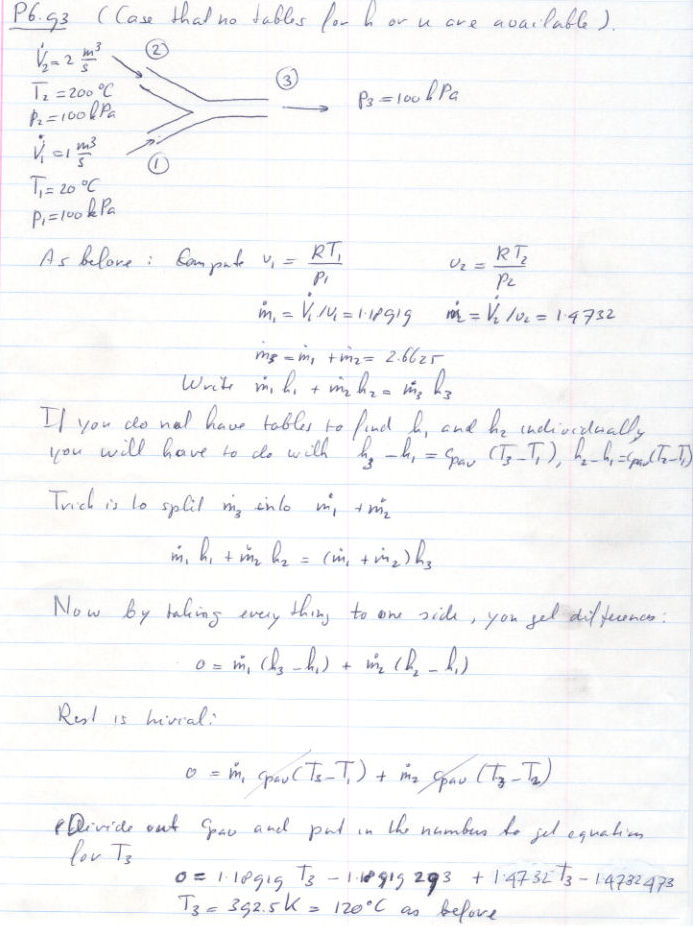 P6.93 (Case that no tables for h or u are available).
V̇₂ = 2 m³/s
②
T₂ = 200 °C
③
P₂ = 100 kPa
P₃ = 100 kPa
V̇₁ = 1 m³/s
①
T₁ = 20 °C
P₁ = 100 kPa
As before : Compute v₁ = RT₁/P₁ v₂ = RT₂/P₂
ṁ₁ = V̇₁/v₁ = 1.18919 ṁ₂ = V̇₂/v₂ = 1.4732
ṁ₃ = ṁ₁ + ṁ₂ = 2.6625
Write ṁ₁ h₁ + ṁ₂ h₂ = ṁ₃ h₃
If you do not have tables to find h₁ and h₂ individually
you will have to do with h₃ - h₁ = cpav (T₃ - T₁), h₂ - h₁ = cpav (T₂ - T₁)
Trick is to split ṁ₃ into ṁ₁ + ṁ₂
ṁ₁ h₁ + ṁ₂ h₂ = (ṁ₁ + ṁ₂) h₃
Now by taking every thing to one side, you get differences:
0 = ṁ₁ (h₃ - h₁) + ṁ₂ (h₂ - h₁)
Rest is trivial:
0 = ṁ₁ cpav (T₃ - T₁) + ṁ₂ cpav (T₃ - T₂)
Divide out cpav and put in the numbers to get equation
for T₃
0 = 1.18919 T₃ - 1.18919 293 + 1.4732 T₃ - 1.4732 473
T₃ = 392.5 K = 120 °C as before